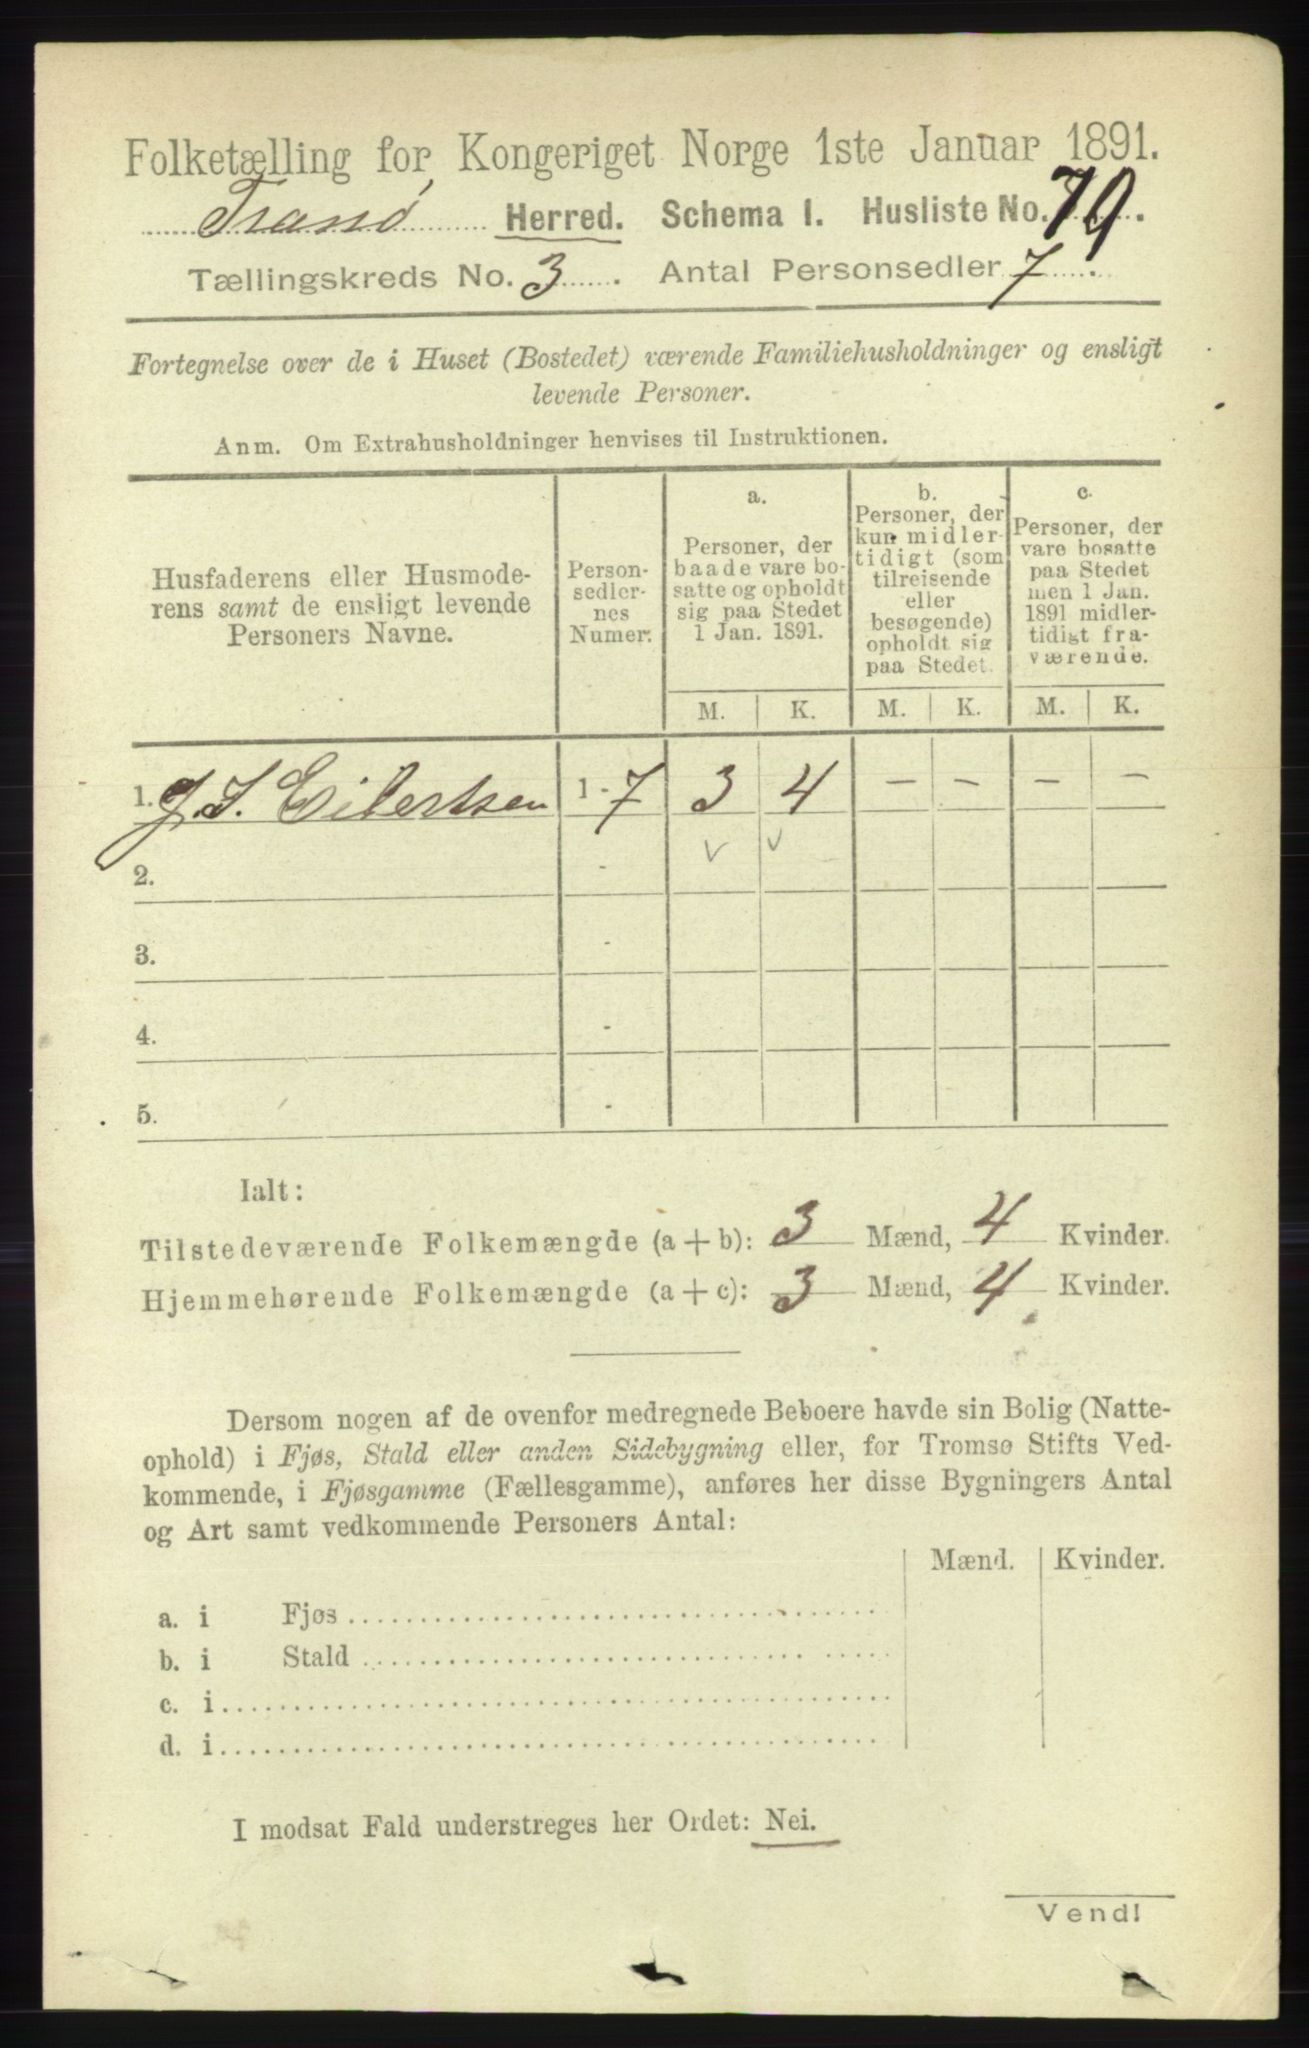 Folketælling for Kongeriget Norge 1ste Januar 1891.
Tranø Herred. Schema I. Husliste No. 79.
Tællingskreds No. 3. Antal Personsedler 7.
Fortegnelse over de i Huset (Bostedet) værende Familiehusholdninger og ensligt
levende Personer.
Anm. Om Extrahusholdninger henvises til Instruktionen.
Husfaderens eller Husmode-
rens samt de ensligt levende
Personers Navne.
Person-
sedler-
nes
Numer.
a.
Personer, der
baade vare bo-
satte og opholdt
sig paa Stedet
1 Jan. 1891.
b.
Personer, der
kun midler-
tidigt (som
tilreisende
eller
besøgende)
opholdt sig
paa Stedet.
c.
Personer, der
vare bosatte
paa Stedet
men 1 Jan.
1891 midler-
tidigt fra-
værende.
M. K. M. K. M. K.
1. J. S. Eilertsen 1 - 7 3 4 - - - -
2. -
3. -
4. -
5. -
Ialt:
Tilstedeværende Folkemængde (a + b): 3 Mænd, 4 Kvinder.
Hjemmehørende Folkemængde (a + c): 3 Mænd, 4 Kvinder.
Dersom nogen af de ovenfor medregnede Beboere havde sin Bolig (Natte-
ophold) i Fjøs, Stald eller anden Sidebygning eller, for Tromsø Stifts Ved-
kommende, i Fjøsgamme (Fællesgamme), anføres her disse Bygningers Antal
og Art samt vedkommende Personers Antal:
Mænd. Kvinder.
a. i Fjøs
b. i Stald
c. i
d. i
I modsat Fald understreges her Ordet: Nei.
Vend!